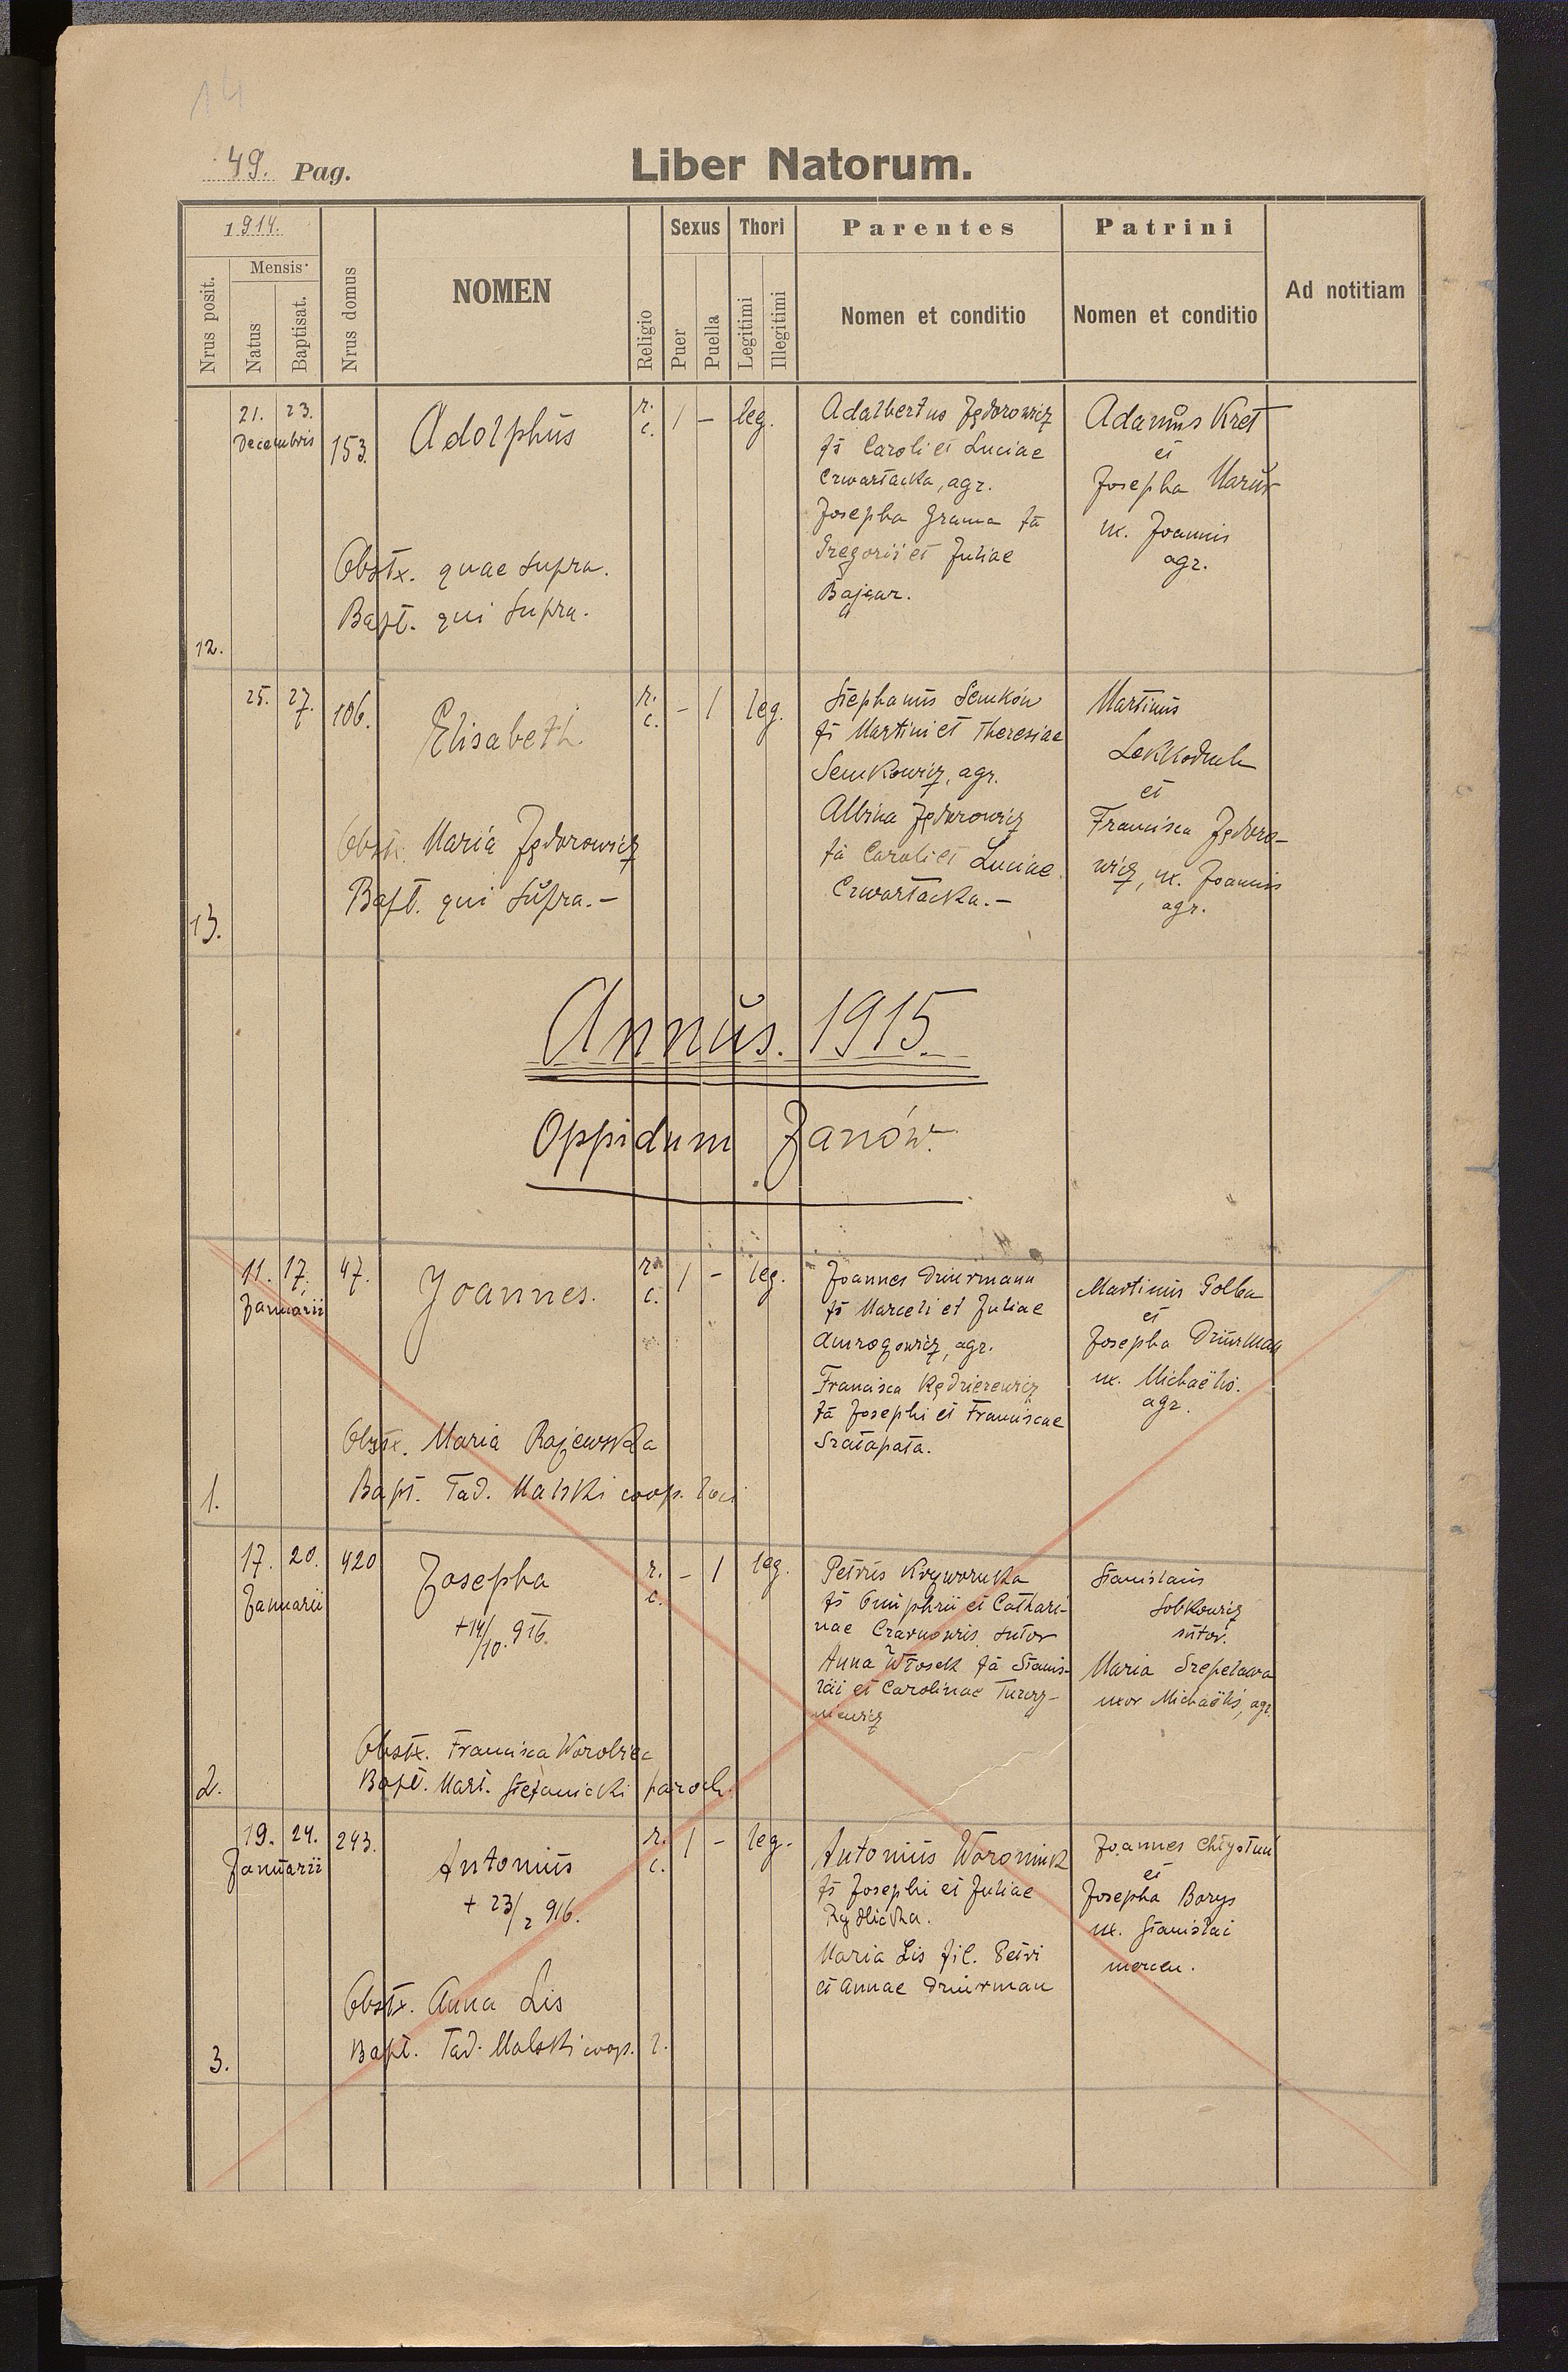 14
49. Pag.
Liber Natorum.
1914.
Nrus posit.
Mensis
Natus
Baptisat.
Nrus domus
NOMEN
Religio
Sexus
Puer
Puella
Thori
Legitimi
Illegitimi
Parentes
Nomen et conditio
Patrini
Nomen et conditio
Ad notitiam
12.
21. 23.
Decembris
153.
Adolphus
r.
c.
1 – leg.
Obstx. quae supra.
Bapt. qui supra.
Adalbertus Jędorowicz
fs Caroli et Luciae
Czwartacka, agr.
Josepha Grama fa
Gregorii et Juliae
Bajcar.
Adamus Kret
et
Josepha
ux. Joannis
agr.
13.
25. 27.
106.
Elisabeth.
r.
c.
– 1 leg.
Obstx. Maria Jędorowicz
Bapt. qui supra.–
Stephanus Semków
fs Martini et Theresiae
Semkowicz, agr.
Albina Jędorowicz
fa Caroli et Luciae
Czwartacka.–
Martinus
et
Francisca Jędoro-
wicz, ux. Joannis
agr.
Annus. 1915.
Oppidum Janów.
1.
11. 17.
Januarii
47.
Joannes.
r.
c.
1 – leg.
Obstx. Maria Rajewska
Bapt. Tad. Malski coop. loci
Joannes Dziurmann
fs Marceli et Juliae
agr.
Francisca Kędzierewicz
fa Josephi et Franciscae
Szałapata.
Martinus Golba
et
Josepha Dziurman
ux. Michaëlis.
agr.
2.
17. 20.
Januarii
420
Josepha
+14/10. 916.
r.
c.
– 1 leg.
Obstx. Francisca Worobiec
Bapt. Mart. Stefanicki paroch.
Petrus Kryworuka
fs Onuphrii et Cathari-
nae sutor
Anna Włosek fa Stanis-
lai et Carolinae Turzy-
niewicz
Stanislaus
Sobkowicz
sutor.
Maria Szepelawa
uxor Michaëlis, agr.
3.
19. 24.
Januarii
243.
Antonius
+ 23/2 916.
r.
c.
1 – leg.
Obstx. Anna Lis
Bapt. Tad. Malski coop. l.
Antonius Woroniuk
fs Josephi et Juliae
Rydlicka.
Maria Lis fil. Petri
et Annae Dziurman
Joannes Chłystun
et
Josepha Borys
ux. Stanislai
mercen.